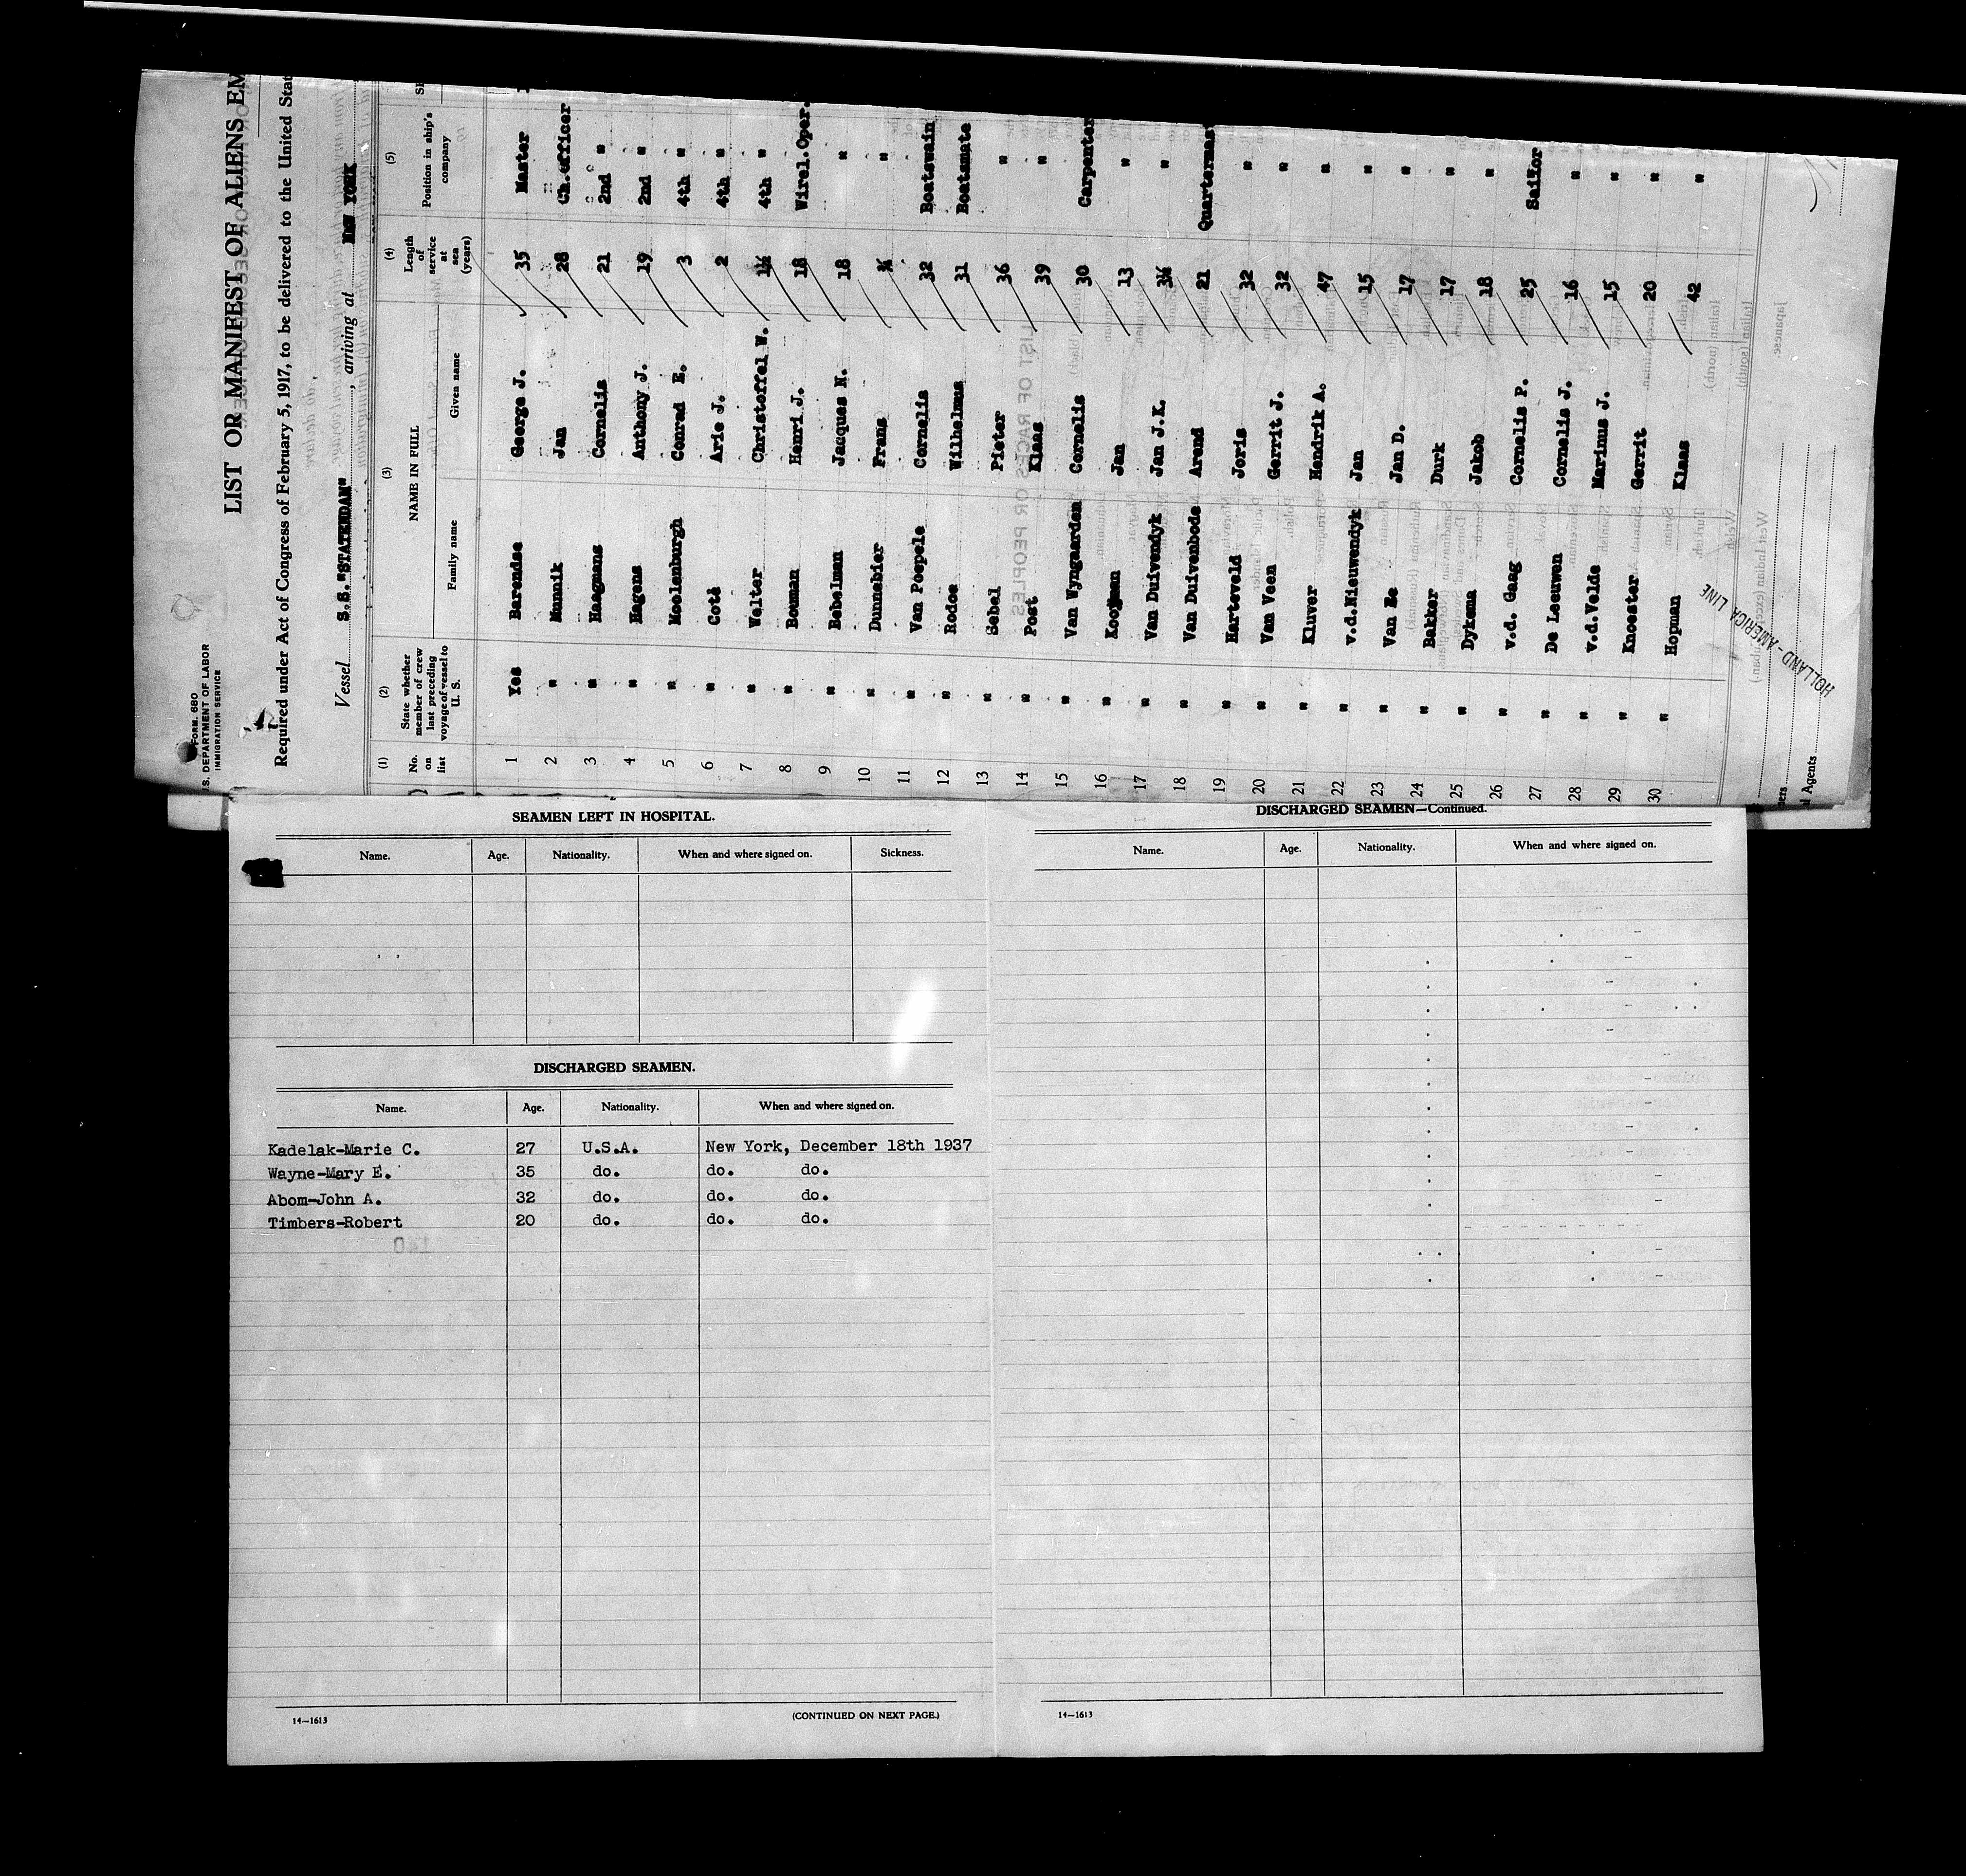 FORM 680
U.S. DEPARTMENT OF LABOR
IMMIGRATION SERVICE
LIST OR MANIFEST OF ALIENS EM
Required under Act of Congress of February 5, 1917, to be delivered to the United Stat
Vessel S.S."STATENDAM", arriving at NEW YORK
(1) (2) (3) (4) (5)
No. on list State whether member of crew last preceding voyage of vessel to U. S. NAME IN FULL Family name Given name Length of service at sea (years) Position in ship's company
1 Yes Barendse George J. 35 Master
2 " Munnik Jan 28 Ch.Officer
3 " Haagmans Cornelis 21 2nd "
4 " Hagens Anthony J. 19 2nd "
5 " Moolenburgh Conrad E. 3 4th "
6 " Coté Arie J. 2 4th "
7 " Welter Christoffel W. 1½ 4th "
8 " Bouman Henri J. 18 Wirel.Oper.
9 " Bebelman Jacques N. 18 "
10 " Dunnebier Frans "
11 " Van Poepele Cornelis 32 Boatswain
12 " Rodoe Wilhelmus 31 Boatsmate
13 " Sebel Pieter 36 "
14 " Post Klaas 39 "
15 " Van Wyngaarden Cornelis 30 Carpenter
16 " Kooyman Jan 13 "
17 " Van Duivendyk Jan J.K. 3½ "
18 " Van Duivenbode Arend 21 Quartermast
19 " Harteveld Joris 32 "
20 " Van Veen Gerrit J. 32 "
21 " Kluver Hendrik A. 47 "
22 " v.d.Nieuwendyk Jan 15 "
23 " Van Ee Jan D. 17 "
24 " Bakker Durk 17 "
25 " Dykema Jakob 18 "
26 " v.d. Gaag Cornelis P. 25 Sailor
27 " De Leeuwen Cornelis J. 16 "
28 " v.d.Velde Marinus J. 15 "
29 " Knoester Gerrit 20 "
30 " Hopman Klaas 42 "
HOLLAND-AMERICA LINE
Agents
SEAMEN LEFT IN HOSPITAL.
Name. Age. Nationality. When and where signed on. Sickness.
DISCHARGED SEAMEN.
Name. Age. Nationality. When and where signed on.
Kadelak-Marie C. 27 U.S.A. New York, December 18th 1937
Wayne-Mary E. 35 do. do. do.
Abom-John A. 32 do. do. do.
Timbers-Robert 20 do. do. do.
14—1613 (CONTINUED ON NEXT PAGE.)
DISCHARGED SEAMEN—Continued.
Name. Age. Nationality. When and where signed on.
14—1613